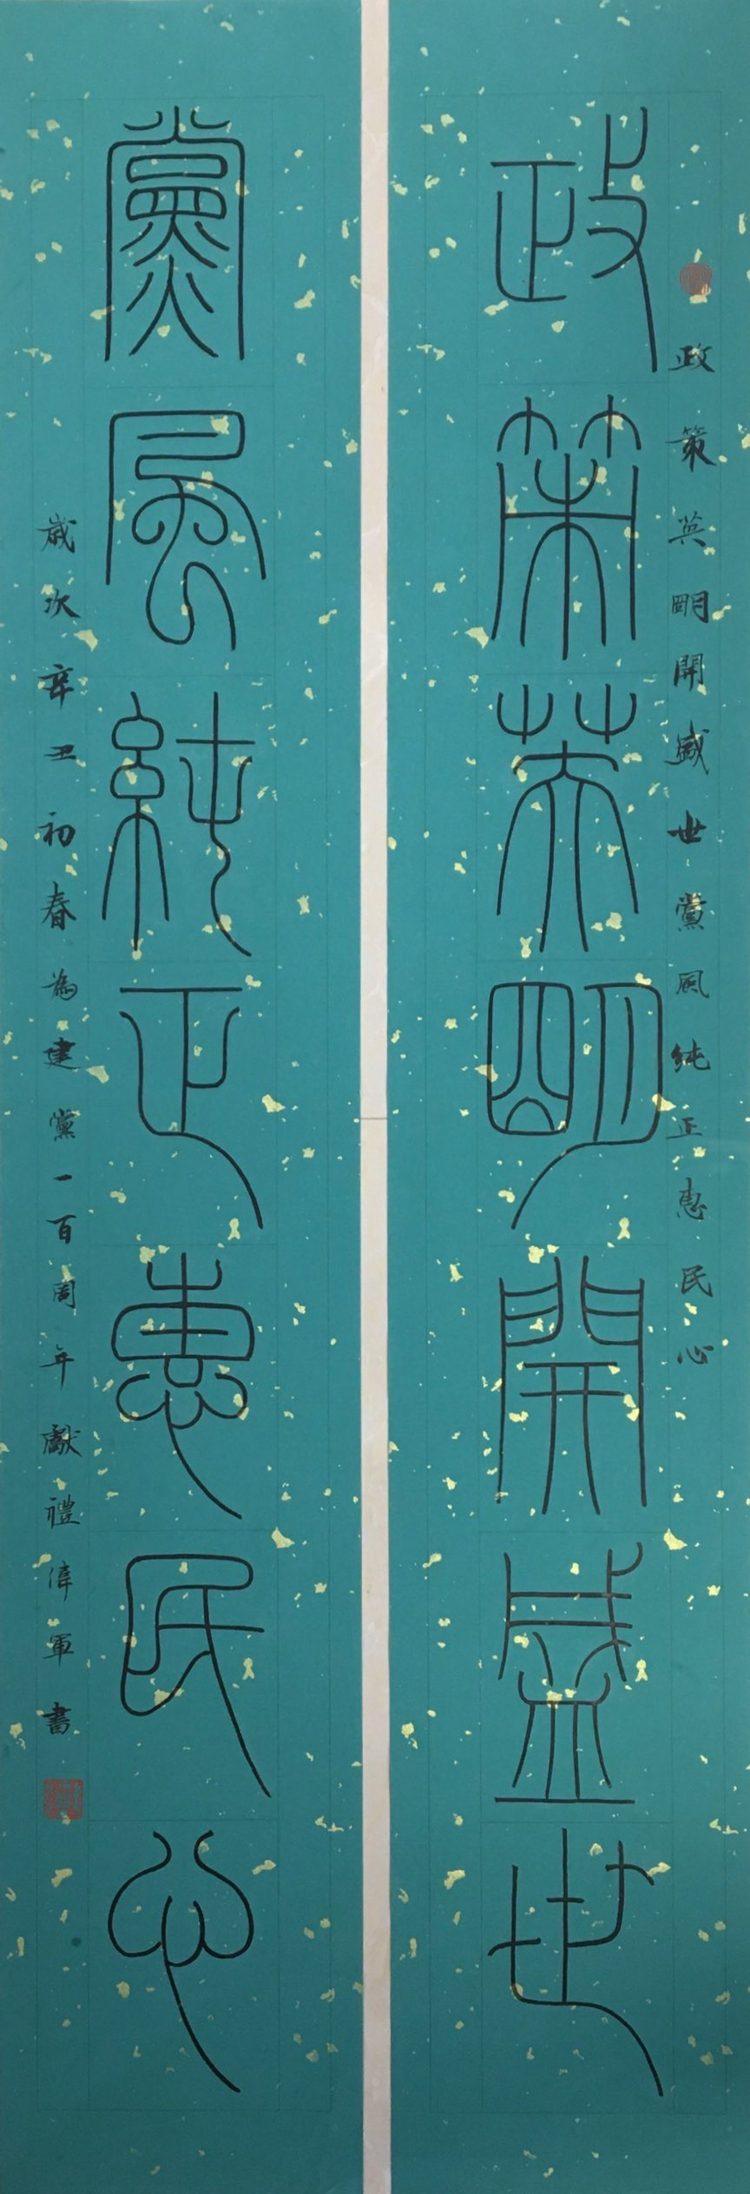 政策英明開盛世
政策英明開盛世黨風純正惠民心
黨風純正惠民心
歲次辛丑初春為建黨一百周年獻禮偉軍書